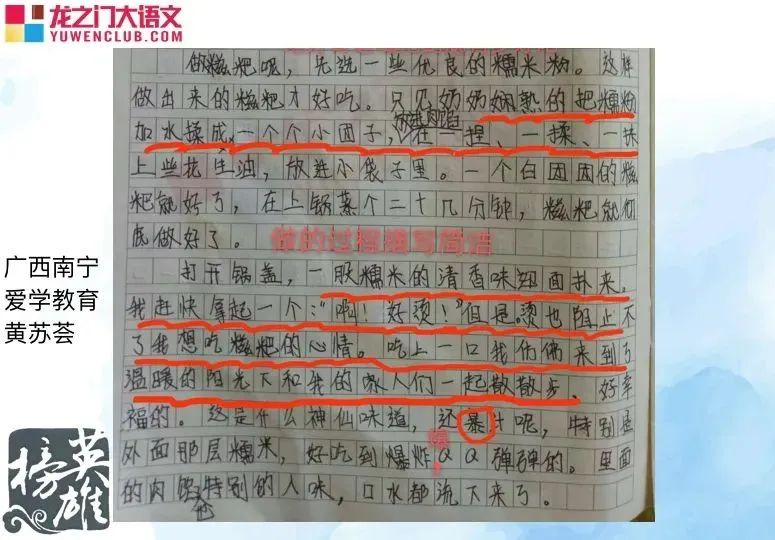 龙之门大语文
YUWENCLUB.COM
做糍粑呢，先选一些优良的糯米粉。这样
做出来的糍粑才好吃。只见奶奶娴熟的把糯粉
放进肉馅
加水揉成一个个小团子，在一捏、一揉、一抹
上些花生油，放进小袋子里。一个白团团的糍
粑就好了，在上锅蒸个二十几分钟，糍粑就彻
底做好了。
做的过程描写简洁
打开锅盖，一股糯米的清香味迎面扑来，
我赶快拿起一个："啊！好烫！"但是烫也阻止不
了我想吃糍粑的心情。吃上一口我仿佛来到了
温暖的阳光下和我的家人们一起散散步。好幸
福的。这是什么神仙味道，还暴汁呢，特别是
爆
外面那层糯米，好吃到爆炸，QQ弹弹的。里面
的肉馅特别的入味，口水都流下来了。
也
广西南宁
爱学教育
黄苏荟
英雄榜